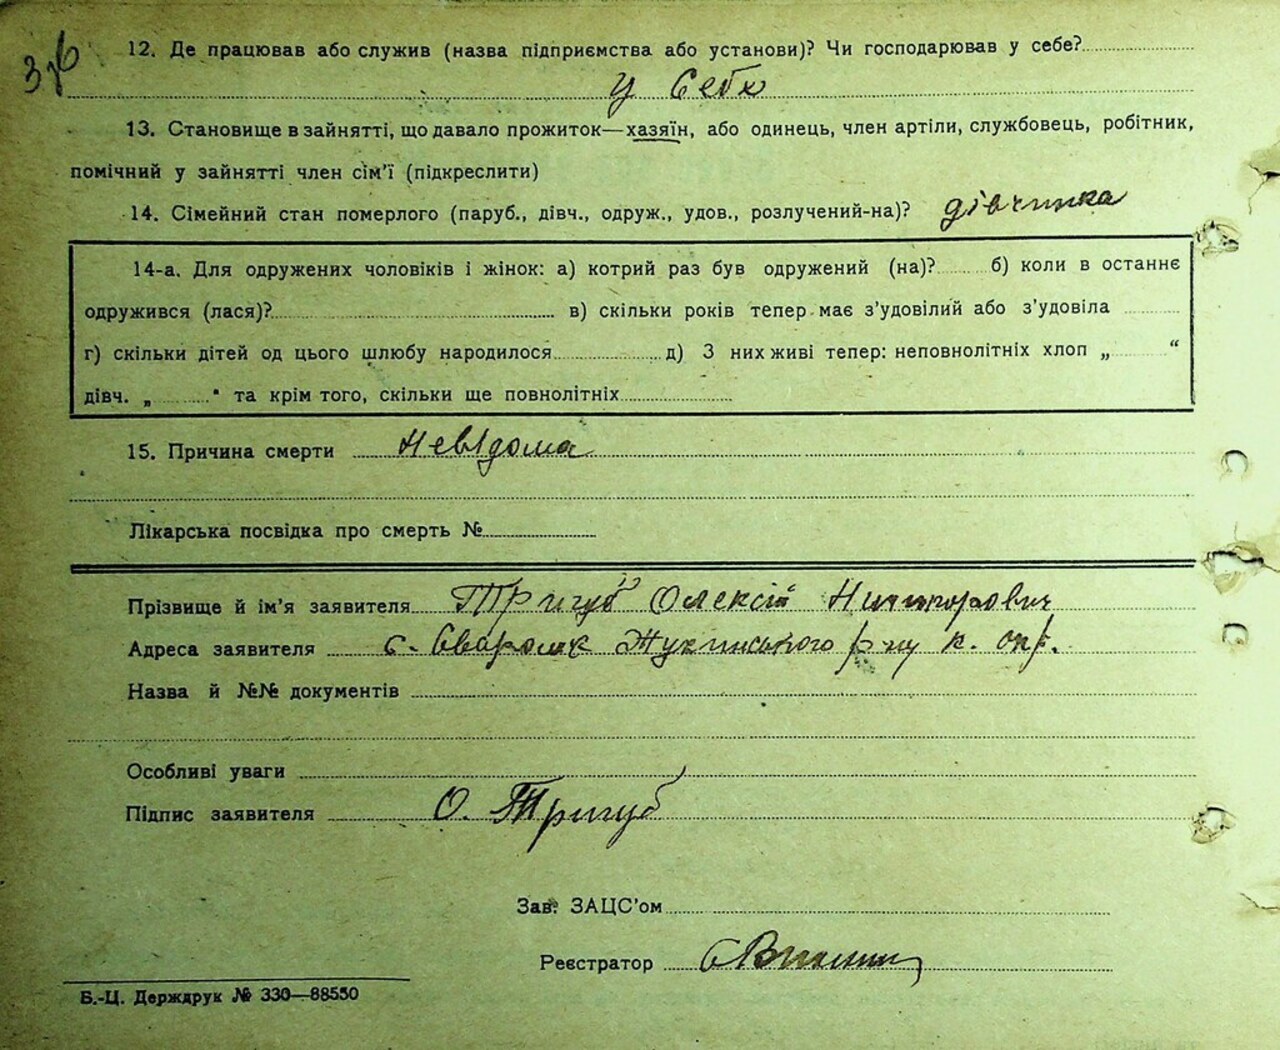 12. Де працював або служив (назва підприємства або установи)? Чи господарював у себе?
у себе
13. Становище в зайнятті, що давало прожиток—хазяїн, або одинець, член артіли, службовець, робітник,
помічний у зайнятті член сім'ї (підкреслити)
14. Сімейний стан померлого (паруб., дівч., одруж., удов., розлучений-на)? дівчинка
14-а. Для одружених чоловіків і жінок: а) котрий раз був одружений (на)? б) коли в останнє
одружився (лася)? в) скільки років тепер має з'удовілий або з'удовіла
г) скільки дітей од цього шлюбу народилося д) З них живі тепер: неповнолітніх хлоп „ “
дівч. „ “ та крім того, скільки ще повнолітніх
15. Причина смерти невідома
Лікарська посвідка про смерть №
Прізвище й ім'я заявителя Тригуб Олексій Ничипорович
Адреса заявителя с. Сваромʼє Жукинського р-ну К. окр.
Назва й №№ документів
Особливі уваги
Підпис заявителя О. Тригуб
Зав. ЗАЦС'ом
Реєстратор
Б.-Ц. Держдрук № 330—88550